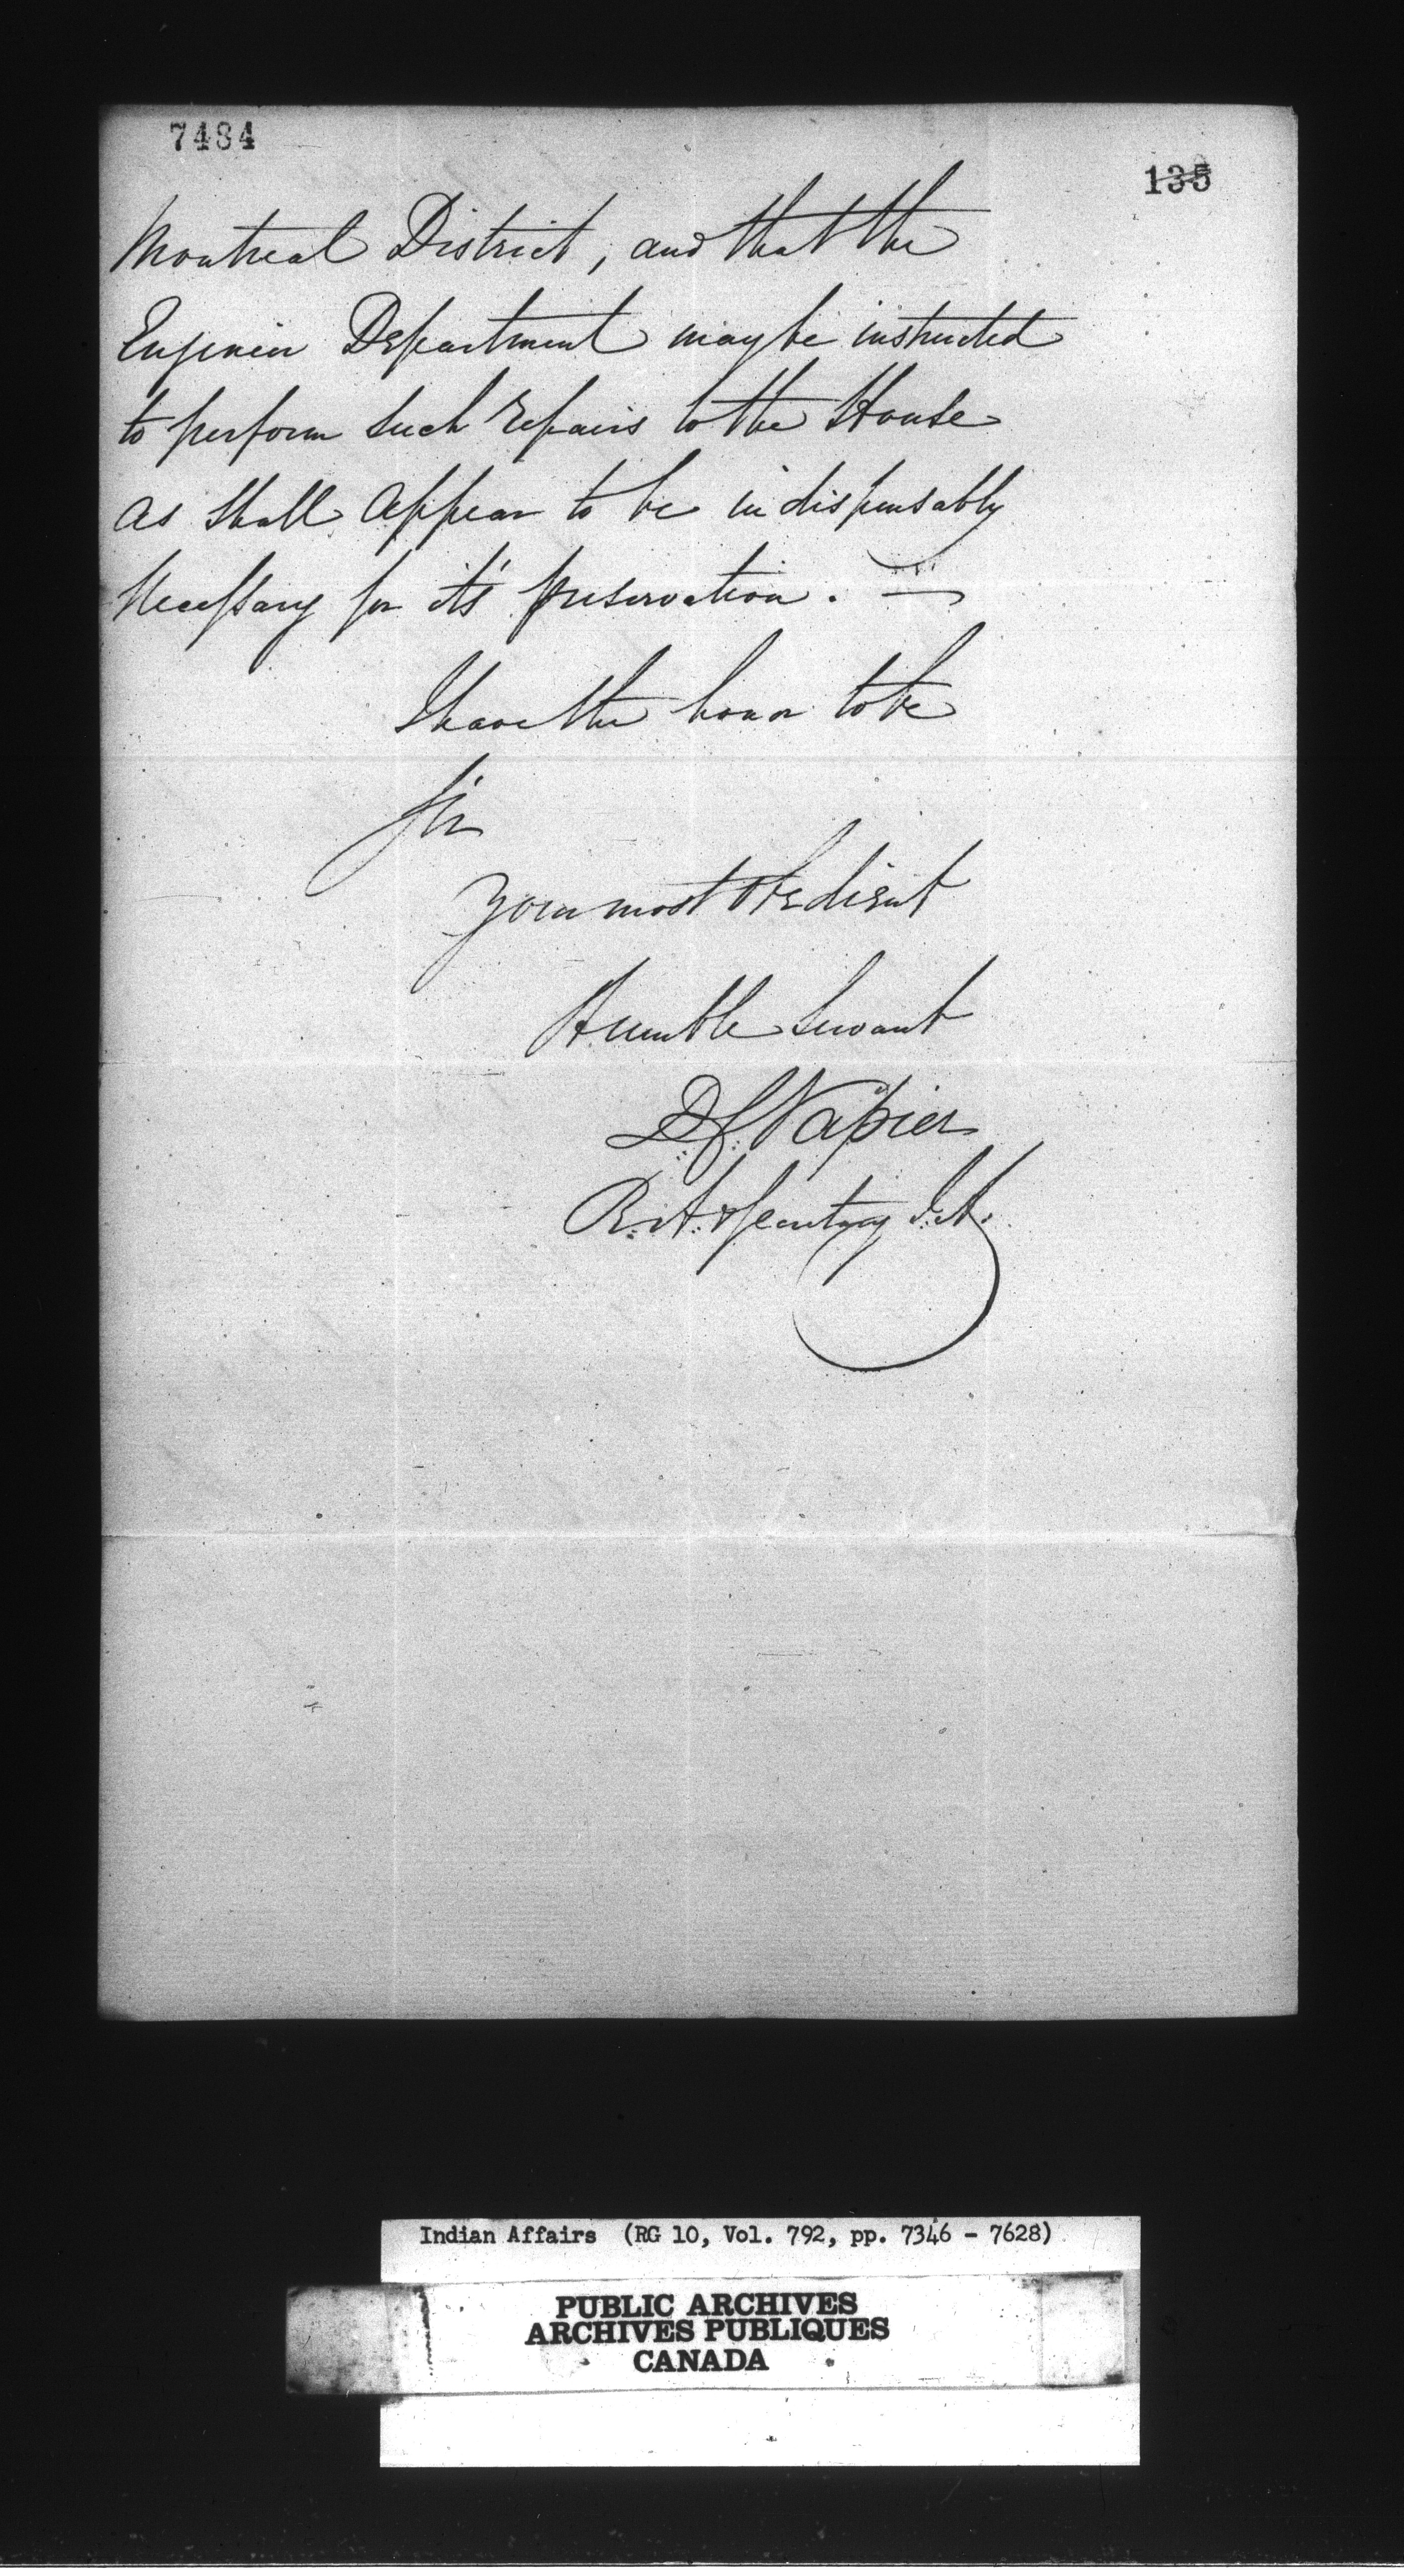 7484
135
Montreal District, and that the
Engineer Department may be instructed
to perform such repairs to the House
as shall appear to be indispensably
Necessary for it's preservation. —
I have the honor to be
Sir
Your most Obedient
Humble Servant
D. C. Napier
R. A. Secretary I. A.
Indian Affairs (RG 10, Vol. 792, pp. 7346 - 7628)
PUBLIC ARCHIVES
ARCHIVES PUBLIQUES
CANADA